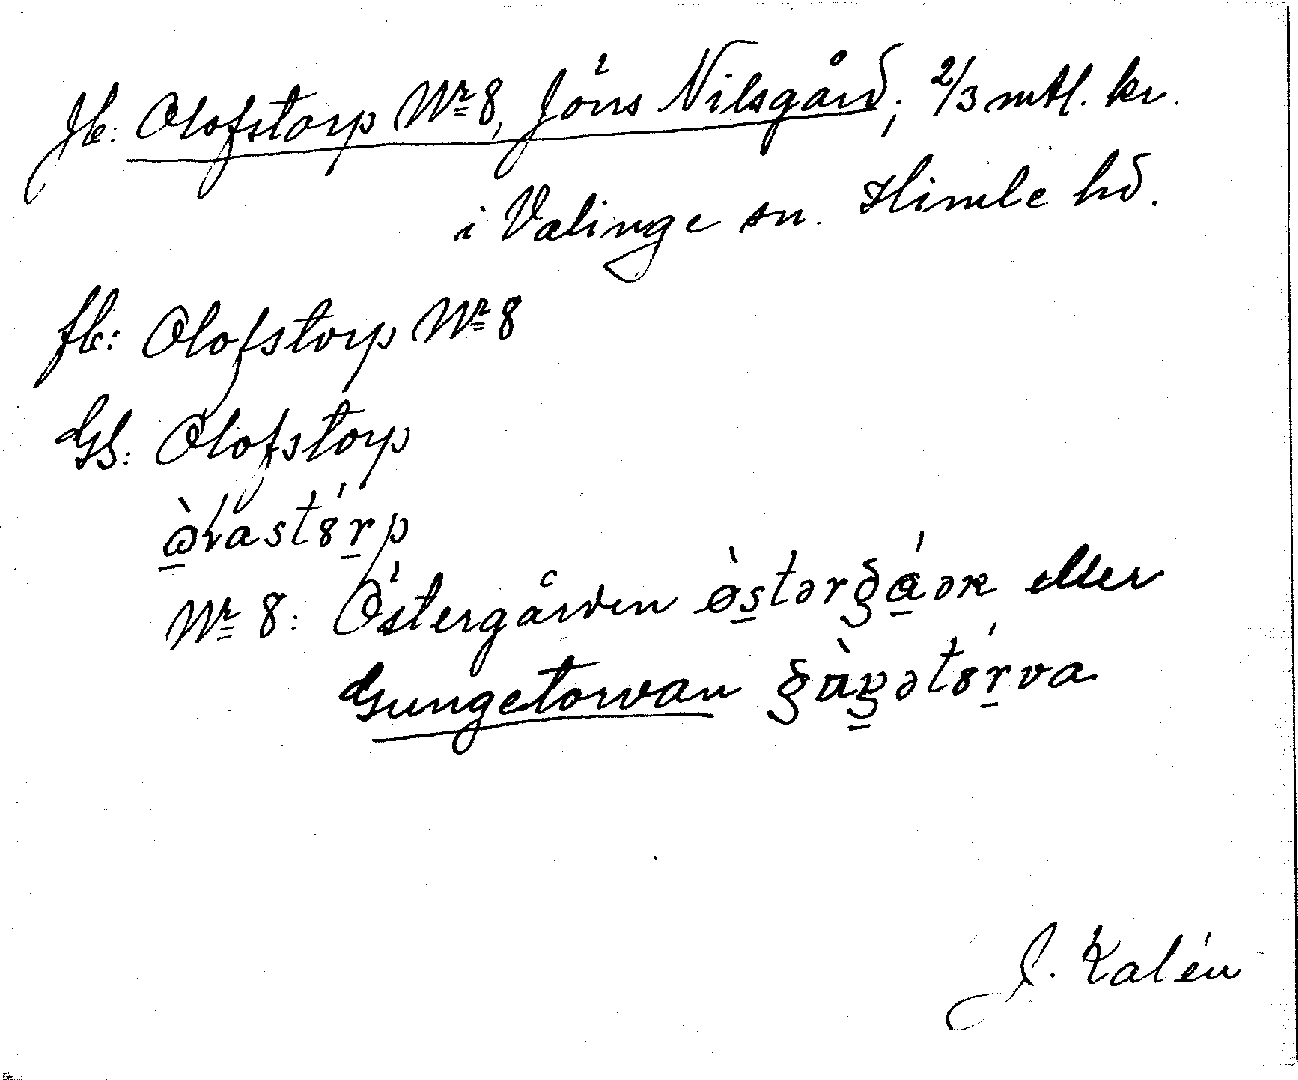 Jb: Olofstorp Nr 8, Jöns Nilsgård; 2/3 mtl. kr.
i Valinge sn. Himle hd.
fb: Olofstorp Nr 8
Gs: Olofstorp
Nr 8: Östergården eller
Gungetorvan
J. Kalén